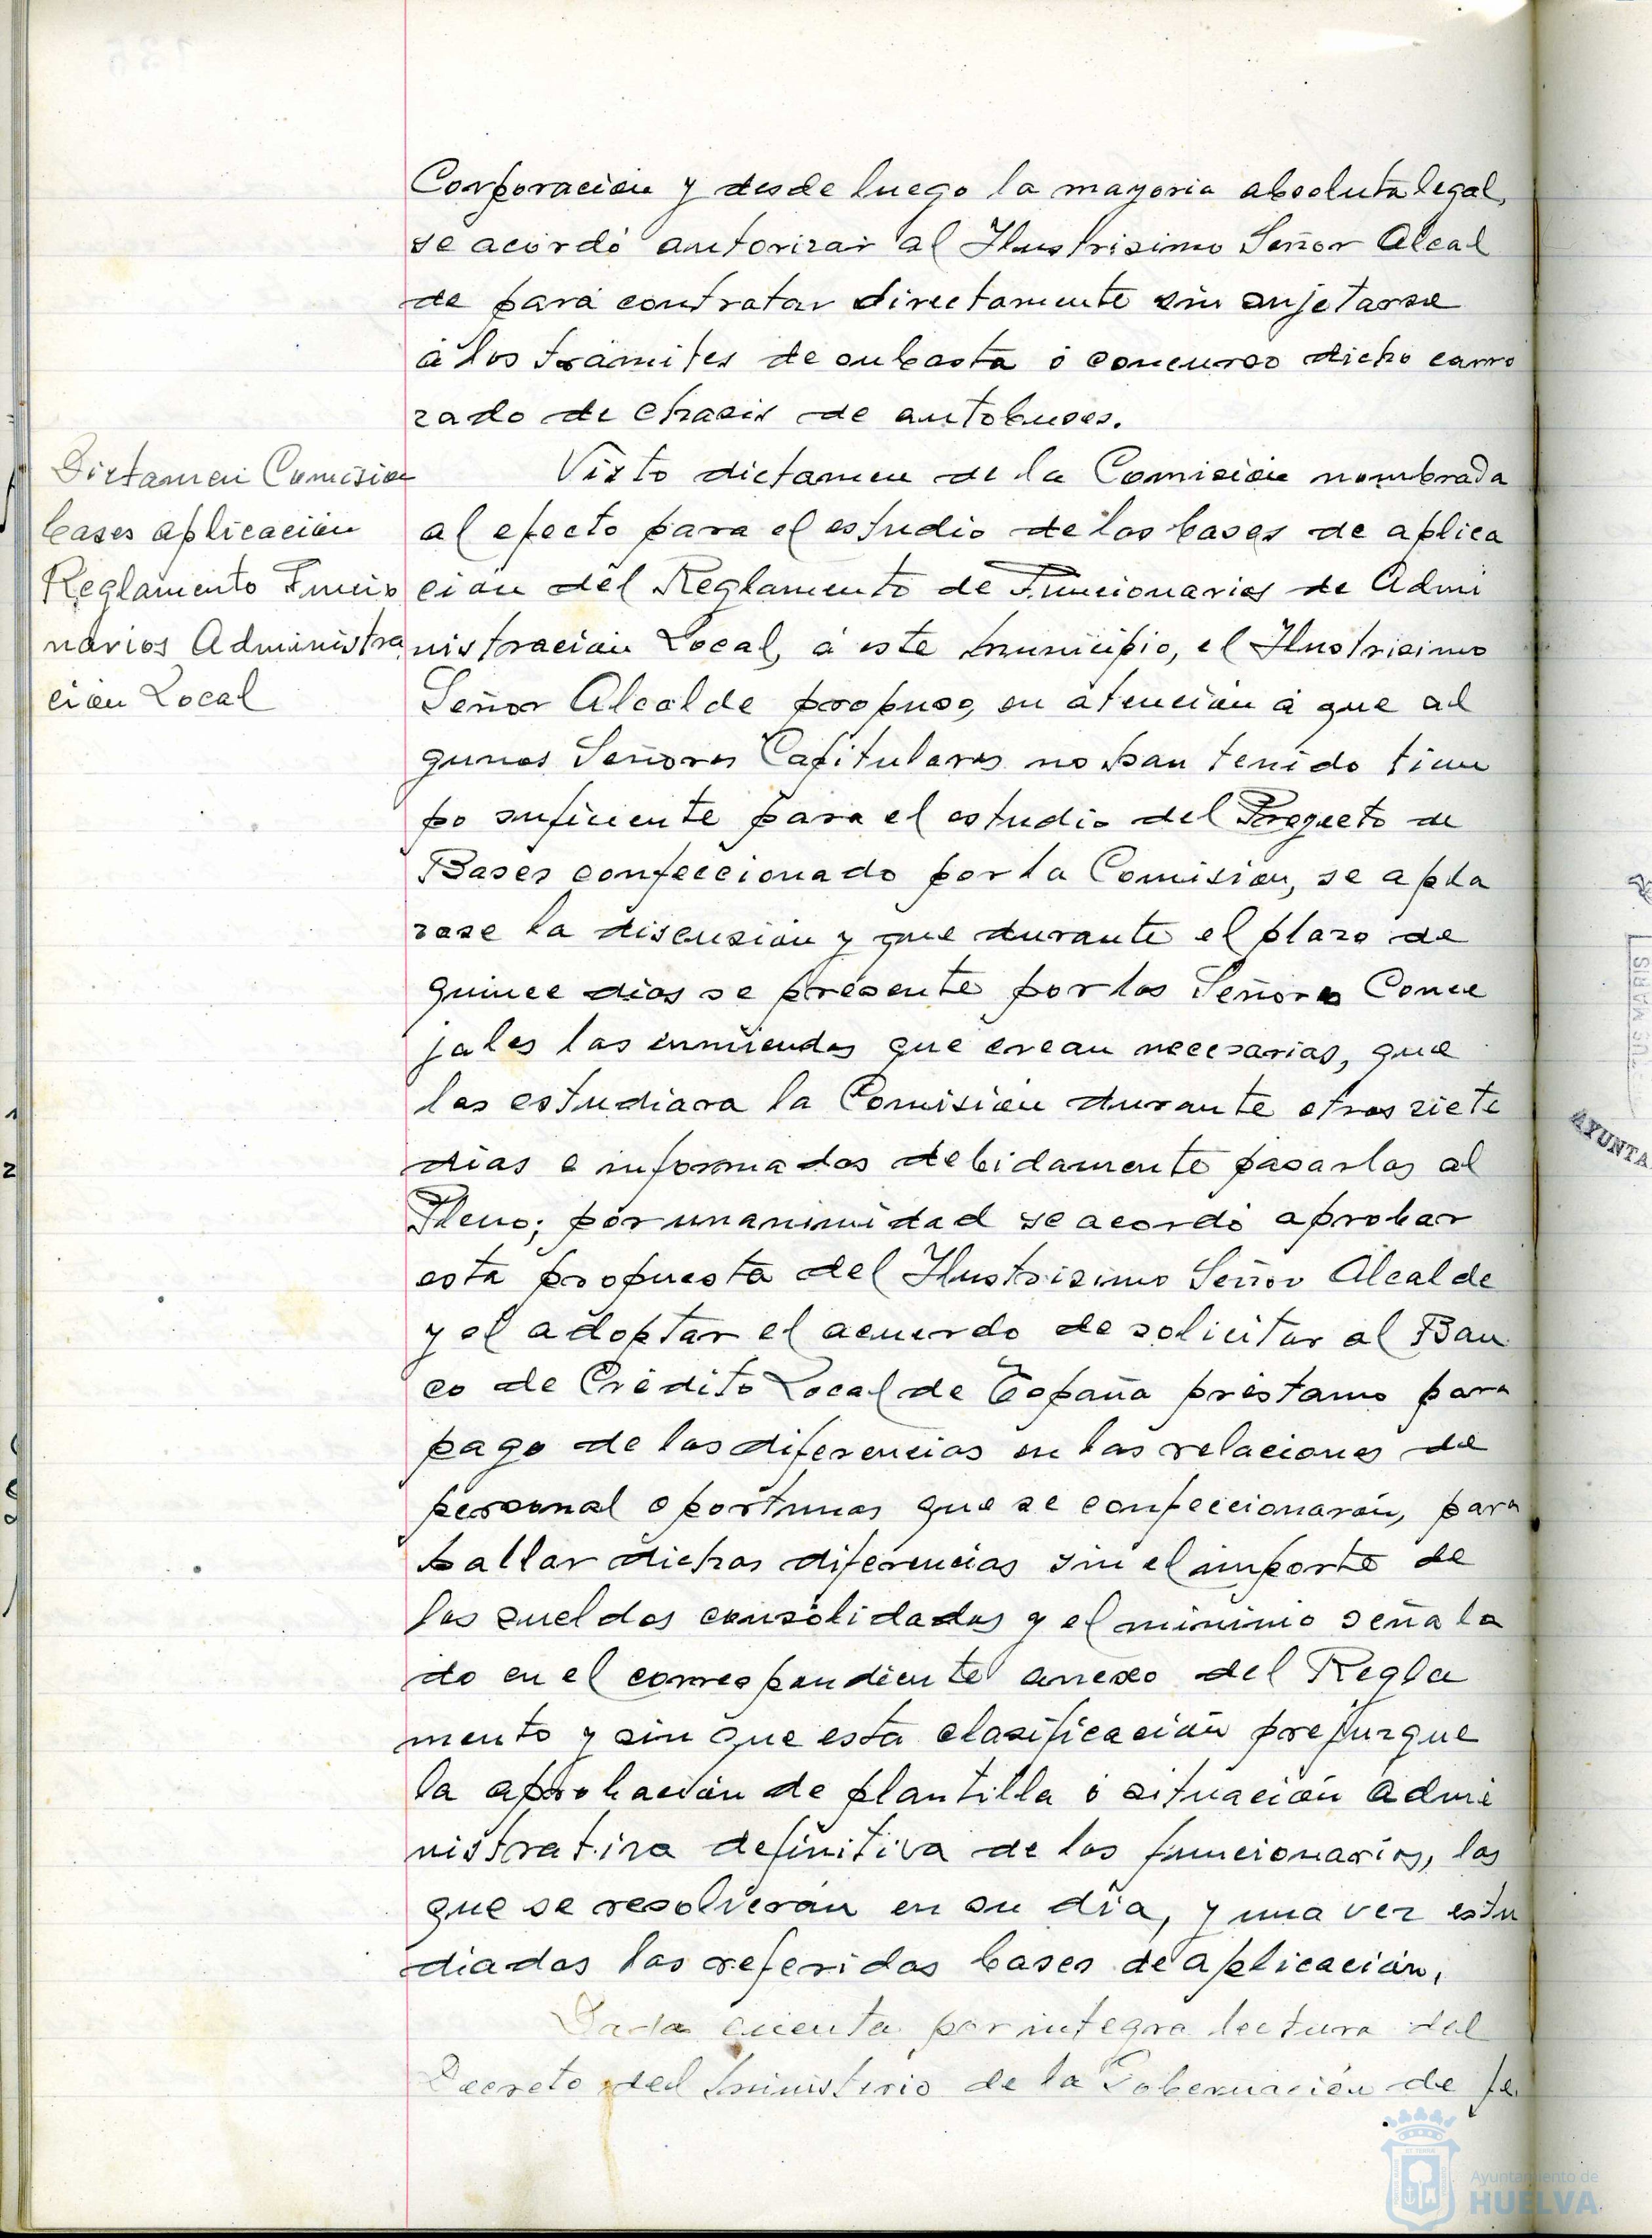 Corporación y desde luego la mayoria absoluta legal,
se acordó autorizar al Ilustrisimo Señor Alcal
de para contratar directamente sin sujetarse
á los trámites de subasta ó concurso dicho carro
zado de chasis de autobuses.
Dictamen Comision
bases aplicación
Reglamento Funcio
narios Administra
ción Local
Visto dictamen de la Comisión nombrada
al efecto para el estudio de las bases de aplica
ción del Reglamento de Funcionarios de Admi
nistración Local, á este municipio, el Ilustrisimo
Señor Alcalde propuso, en atención á que al
gunos Señores Capitulares no han tenido tiem
po suficiente para el estudio del Proyecto de
Bases confeccionado por la Comisión, se apla
zase la discusión y que durante el plazo de
quince dias se presente por los Señores Conce
jales las enmiendas que crean necesarias, que
las estudiara la Comisión durante otros siete
dias e informadas debidamente pasarlas al
Pleno; por unanimidad se acordó aprobar
esta propuesta del Ilustrisimo Señor Alcalde
y el adoptar el acuerdo de solicitar al Ban
co de Crédito Local de España préstamo para
pago de las diferencias en las relaciones de
personal oportunas que se confeccionarán, para
hallar dichas diferencias sin el importe de
los sueldos consolidados y el minimo señala
do en el correspondiente anexo del Regla
mento y sin que esta clasificación prejuzgue
la aprobación de plantilla ó situación admi
nistrativa definitiva de los funcionarios, las
que se resolverán en su dia, y una vez estu
diadas las referidas bases de aplicación.
Dada cuenta por integra lectura del
Decreto del Ministerio de la Gobernación de fe
AYUNTA
Ayuntamiento de
HUELVA